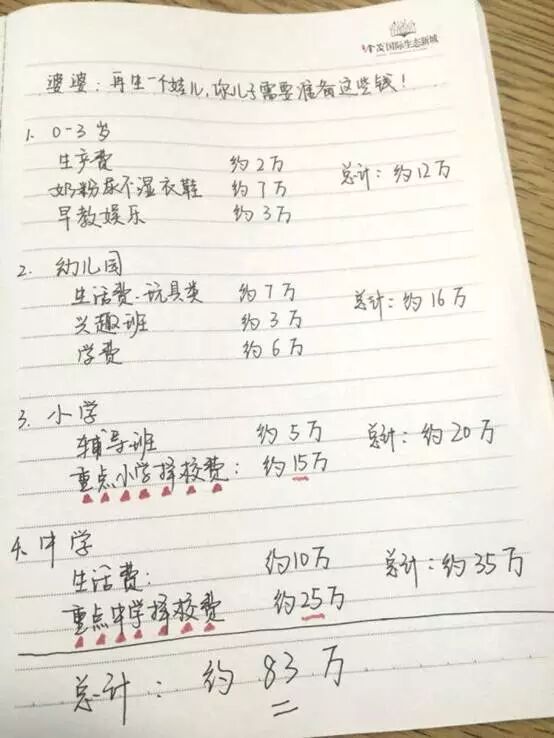 个旧国际生态新城
婆婆：再生一个娃儿，你儿子需要准备这些钱！
1. 0-3岁
生产费 约2万
奶粉尿不湿衣鞋 约7万 总计：约12万
早教娱乐 约3万
2. 幼儿园
生活费·玩具类 约7万 总计：约16万
兴趣班 约3万
学费 约6万
3. 小学
辅导班 约5万 总计：约20万
重点小学择校费：约15万
4. 中学
生活费： 约10万 总计：约35万
重点中学择校费 约25万
总计：约83万